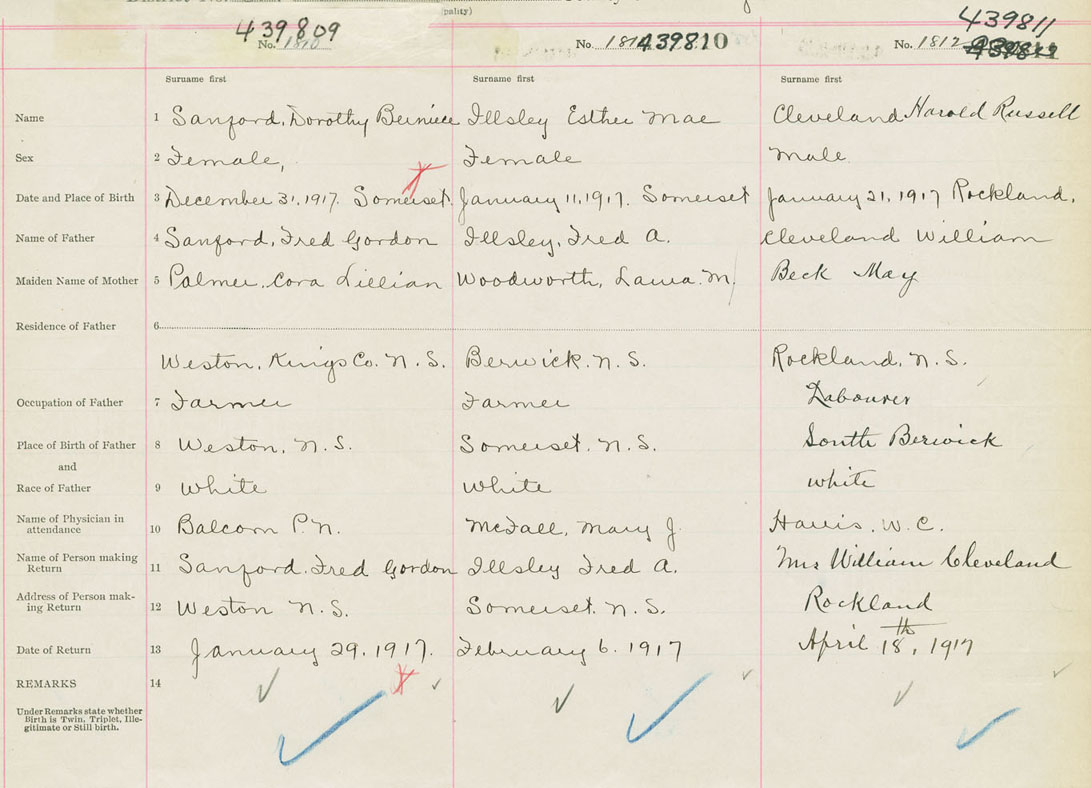 (pality)
439809 439811
No. 1810 No. 1811 439810 No. 1812
Surname first Surname first Surname first
Name 1 Sanford, Dorothy Berniece Illsley Esther Mae Cleveland Harold Russell
Sex 2 Female, Female Male
Date and Place of Birth 3 December 31, 1917. Somerset. January 11, 1917. Somerset January 21, 1917 Rockland.
Name of Father 4 Sanford, Fred Gordon Illsley, Fred A. Cleveland William
Maiden Name of Mother 5 Palmer, Cora Lillian Woodworth, Laura. M. Beck May
Residence of Father 6
Weston, Kings Co. N. S. Berwick. N. S. Rockland, N. S.
Occupation of Father 7 Farmer Farmer Labourer
Place of Birth of Father 8 Weston, N. S. Somerset. N. S. South Berwick
and
Race of Father 9 White White White
Name of Physician in
attendance 10 Balcom P. N. McFall, Mary J. Harris. W. C.
Name of Person making
Return 11 Sanford. Fred Gordon Illsley Fred A. Mrs William Cleveland
Address of Person mak-
ing Return 12 Weston N. S. Somerset. N. S. Rockland
Date of Return 13 January 29, 1917. February 6. 1917 April 18th, 1917
REMARKS 14
Under Remarks state whether
Birth is Twin, Triplet, Ille-
gitimate or Still birth.